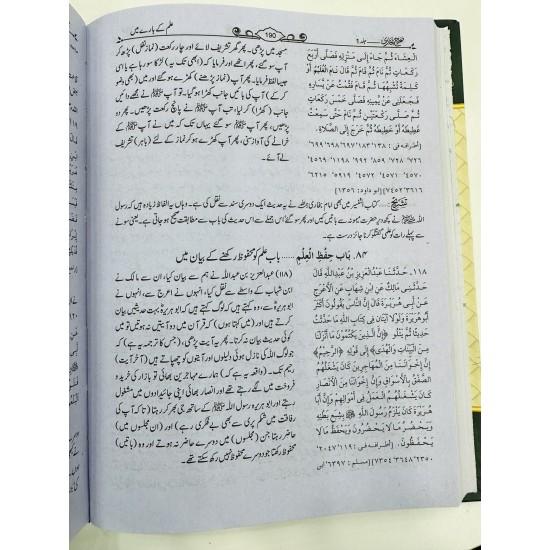 علم کے بارے میں
190
جلد ۲
الْعِشَاءَ ثُمَّ جَاءَ إِلَى مَنْزِلِهِ فَصَلَّى أَرْبَعَ
رَكَعَاتٍ ثُمَّ نَامَ ثُمَّ قَامَ ثُمَّ قَالَ نَامَ الْغُلَيِّمُ أَوْ
كَلِمَةً تُشْبِهُهَا ثُمَّ قَامَ فَقُمْتُ عَنْ يَسَارِهِ
فَجَعَلَنِي عَنْ يَمِينِهِ فَصَلَّى خَمْسَ رَكَعَاتٍ
ثُمَّ صَلَّى رَكْعَتَيْنِ ثُمَّ نَامَ حَتَّى سَمِعْتُ
غَطِيطَهُ أَوْ خَطِيطَهُ ثُمَّ خَرَجَ إِلَى الصَّلَاةِ۔
[اطرافه في: ۱۳۸، ۱۸۳، ۶۹۷، ۶۹۸، ۶۹۹،
۷۲۶، ۷۲۸، ۸۵۹، ۹۹۲، ۱۱۹۸، ۴۵۶۹،
۴۵۷۰، ۴۵۷۱، ۴۵۷۲، ۵۹۱۹، ۶۲۱۵،
۶۳۱۶، ۷۴۵۲] [ابو داود: ۱۳۵۶]
مسجد میں پڑھی۔ پھر گھر تشریف لائے اور چار رکعت (نماز نفل) پڑھ کر
آپ سو گئے، پھر اٹھے اور فرمایا کہ (ابھی تک یہ) لڑکا سو رہا ہے یا اسی
جیسا لفظ فرمایا۔ پھر آپ (نماز پڑھنے) کھڑے ہو گئے اور میں (بھی وضو
کر کے) آپ کی بائیں جانب کھڑا ہو گیا۔ تو آپ ﷺ نے مجھے دائیں
جانب (کھڑا) کر لیا، تب آپ ﷺ نے پانچ رکعت پڑھیں۔ پھر دو
پڑھیں، پھر آپ ﷺ سو گئے یہاں تک کہ میں نے آپ ﷺ کے
خراٹے کی آواز سنی، پھر آپ کھڑے ہو کر نماز کے لئے (باہر) تشریف
لے آئے۔
تشریح: ..... کتاب التفسیر میں بھی امام بخاری نے یہ حدیث ایک دوسری سند سے نقل کی ہے۔ وہاں یہ الفاظ زیادہ ہیں کہ رسول
اللہ ﷺ نے کچھ دیر حضرت میمونہ سے باتیں کیں اور پھر سو گئے، اس جملے سے اس حدیث کی باب سے مطابقت صحیح ہو جاتی ہے۔ یعنی سونے
سے پہلے رات کو علمی گفتگو کرنا جائز درست ہے۔
۸۴۔ بَابُ حِفْظِ الْعِلْمِ ...... باب علم کو محفوظ رکھنے کے بیان میں
۱۱۸۔ حَدَّثَنَا عَبْدُ الْعَزِيزِ بْنُ عَبْدِ اللَّهِ قَالَ
حَدَّثَنِي مَالِكٌ عَنِ ابْنِ شِهَابٍ عَنِ الْأَعْرَجِ
عَنْ أَبِي هُرَيْرَةَ قَالَ إِنَّ النَّاسَ يَقُولُونَ أَكْثَرَ
أَبُو هُرَيْرَةَ وَلَوْلَا آيَتَانِ فِي كِتَابِ اللَّهِ مَا حَدَّثْتُ
حَدِيثًا ثُمَّ يَتْلُو ﴿إِنَّ الَّذِينَ يَكْتُمُونَ مَا أَنْزَلْنَا
مِنَ الْبَيِّنَاتِ وَالْهُدَى﴾ إِلَى قَوْلِهِ ﴿الرَّحِيمُ﴾
إِنَّ إِخْوَانَنَا مِنَ الْمُهَاجِرِينَ كَانَ يَشْغَلُهُمُ
الصَّفْقُ بِالْأَسْوَاقِ وَإِنَّ إِخْوَانَنَا مِنَ الْأَنْصَارِ
كَانَ يَشْغَلُهُمُ الْعَمَلُ فِي أَمْوَالِهِمْ وَإِنَّ أَبَا
هُرَيْرَةَ كَانَ يَلْزَمُ رَسُولَ اللَّهِ ﷺ بِشِبَعِ بَطْنِهِ
وَيَحْضُرُ مَا لَا يَحْضُرُونَ وَيَحْفَظُ مَا لَا
يَحْفَظُونَ۔ [اطرافه في: ۱۱۹، ۲۰۴۷،
۲۳۵۰، ۳۶۴۸، ۷۳۵۴] [مسلم: ۶۳۹۷]
(۱۱۸) عبدالعزیز بن عبداللہ نے ہم سے بیان کیا، ان سے مالک نے
ابن شہاب کے واسطے سے نقل کیا، انہوں نے اعرج سے، انہوں نے
ابو ہریرہ سے، وہ کہتے ہیں کہ لوگ کہتے ہیں کہ ابو ہریرہ بہت حدیثیں بیان
کرتے ہیں اور (میں کہتا ہوں) کہ قرآن میں دو آیتیں نہ ہوتیں تو میں
کوئی حدیث بیان نہ کرتا۔ پھر یہ آیت پڑھی، (جس کا ترجمہ یہ ہے) کہ
جو لوگ اللہ کی نازل ہوئی دلیلوں اور آیتوں کو چھپاتے ہیں (آخر آیت)
رحیم تک۔ (واقعہ یہ ہے کہ) ہمارے مہاجرین بھائی تو بازار کی خرید و
فروخت میں لگے رہتے تھے اور انصار بھائی اپنی جائیدادوں میں مشغول
رہتے اور ابو ہریرہ رسول اللہ ﷺ کے ساتھ جی بھر کر رہتا (تا کہ آپ کی
رفاقت میں شکم پری سے بھی بے فکری رہے) اور (ان مجلسوں میں)
حاضر رہتا جن (مجلسوں) میں دوسرے حاضر نہ ہوتے اور وہ (باتیں)
محفوظ رکھتا جو دوسرے محفوظ نہیں رکھ سکتے تھے۔